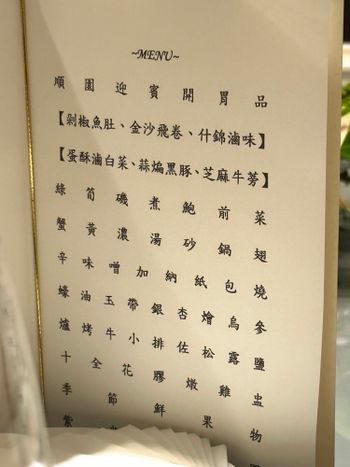 ~MENU~
順園迎賓開胃品
【剁椒魚肚、金沙飛卷、什錦滷味】
【蛋酥滷白菜、蒜煸黑豚、芝麻牛蒡】
綠筍磯煮鮑前菜
蟹黃濃湯砂鍋翅
辛味噌加納紙包燒
蠔油玉帶銀杏燴烏參
爐烤牛小排佐松露鹽
十全花膠燉雞盅
季節鮮果物
紫